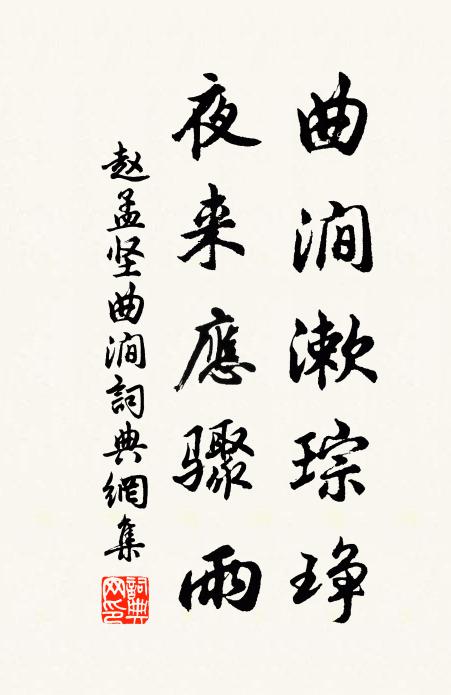 曲涧漱琮琤
夜来應骤雨
赵孟坚曲涧詞典網集
詞典網印